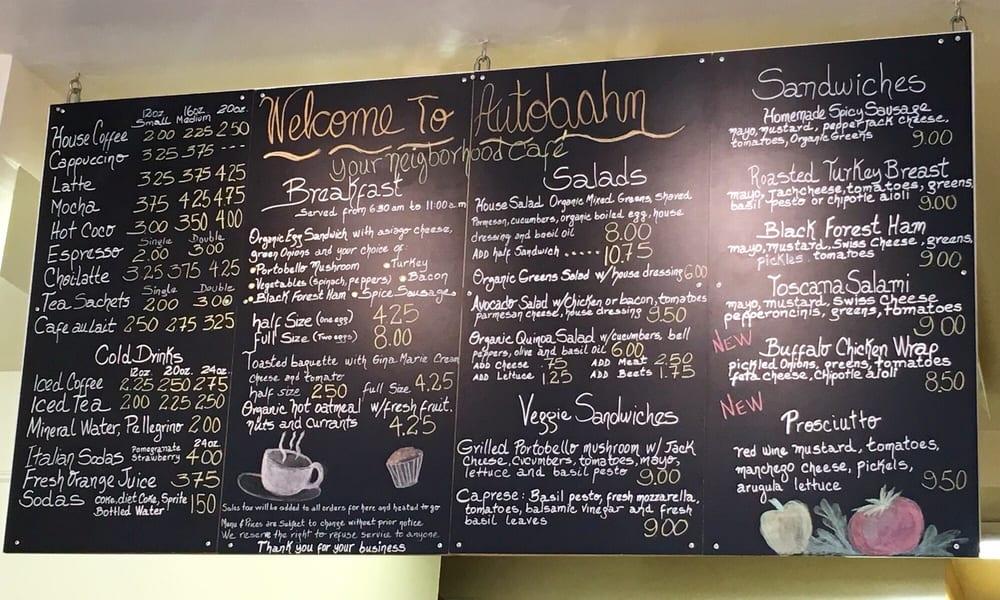 12oz. 16oz. 20oz.
Small Medium
House Coffee 2.00 2.25 2.50
Cappuccino 3.25 3.75 ---
Latte 3.25 3.75 4.25
Mocha 3.75 4.25 4.75
Hot Coco 3.00 3.50 4.00
Single Double
Espresso 2.00 3.00
Chailatte 3.25 3.75 4.25
Single Double
Tea Sachets 2.00 3.00
Cafe au lait 2.50 2.75 3.25
Cold Drinks
12oz. 20oz. 24oz.
Iced Coffee 2.25 2.50 2.75
Iced Tea 2.00 2.25 2.50
Mineral Water, Pellegrino 2.00
24oz.
Italian Sodas Pomegranate
Strawberry 4.00
Fresh Orange Juice 3.75
Sodas Coke, diet Coke, Sprite
Bottled Water 1.50
Welcome To Autobahn
your neigborhood Cafe
Breakfast
Served from 6:30 am to 11:00 a.m
Organic Egg Sandwich with asiago cheese,
green Onions and your choice of:
•Portobello Mushroom •Turkey
•Vegetables (spinach, peppers) •Bacon
•Black Forest Ham •Spice Sausage
half Size (one egg) 4.25
full Size (Two eggs) 8.00
Toasted baguette with Gina Marie Cream
Cheese and tomato
half size 2.50 full Size 4.25
Organic hot oatmeal w/fresh fruit.
nuts and Currants 4.25
Sales tax will be added to all orders for here and heated to go
Menu & Prices are Subject to change without prior notice
We reserve the right to refuse service to anyone
Thank you for your business
Salads
House Salad Organic Mixed Greens, Shaved
Parmesan, cucumbers, organic boiled egg, house
dressing and basil oil 8.00
ADD half Sandwich ..... 10.75
Organic Greens Salad w/house dressing 6.00
Avocado Salad w/Chicken or bacon, tomatoes
parmesan cheese, house dressing 9.50
Organic Quinoa Salad w/cucumbers, bell
peppers, olive and basil oil 6.00
ADD Cheese .75 ADD Meat 2.50
ADD Lettuce 1.25 ADD Beets 1.75
Veggie Sandwiches
Grilled Portobello mushroom w/ Jack
Cheese, cucumbers, tomatoes, mayo,
lettuce and basil pesto 9.00
Caprese: Basil pesto, fresh mozzarella,
tomatoes, balsamic vinegar and fresh
basil leaves 9.00
Sandwiches
Homemade Spicy Sausage
mayo, mustard, pepper jack cheese,
tomatoes, Organic Greens 9.00
Roasted Turkey Breast
mayo, Jack cheese, tomatoes, greens,
basil pesto or chipotle aioli 9.00
Black Forest Ham
mayo, mustard, Swiss cheese, greens,
pickles, tomatoes 9.00
Toscana Salami
mayo, mustard, swiss cheese
pepperoncinis, greens, tomatoes
9.00
NEW Buffalo Chicken Wrap
pickled Onions, greens, tomatoes
feta cheese, Chipotle aioli
8.50
NEW
Prosciutto
red wine mustard, tomatoes,
manchego cheese, pickels,
arugula lettuce 9.50